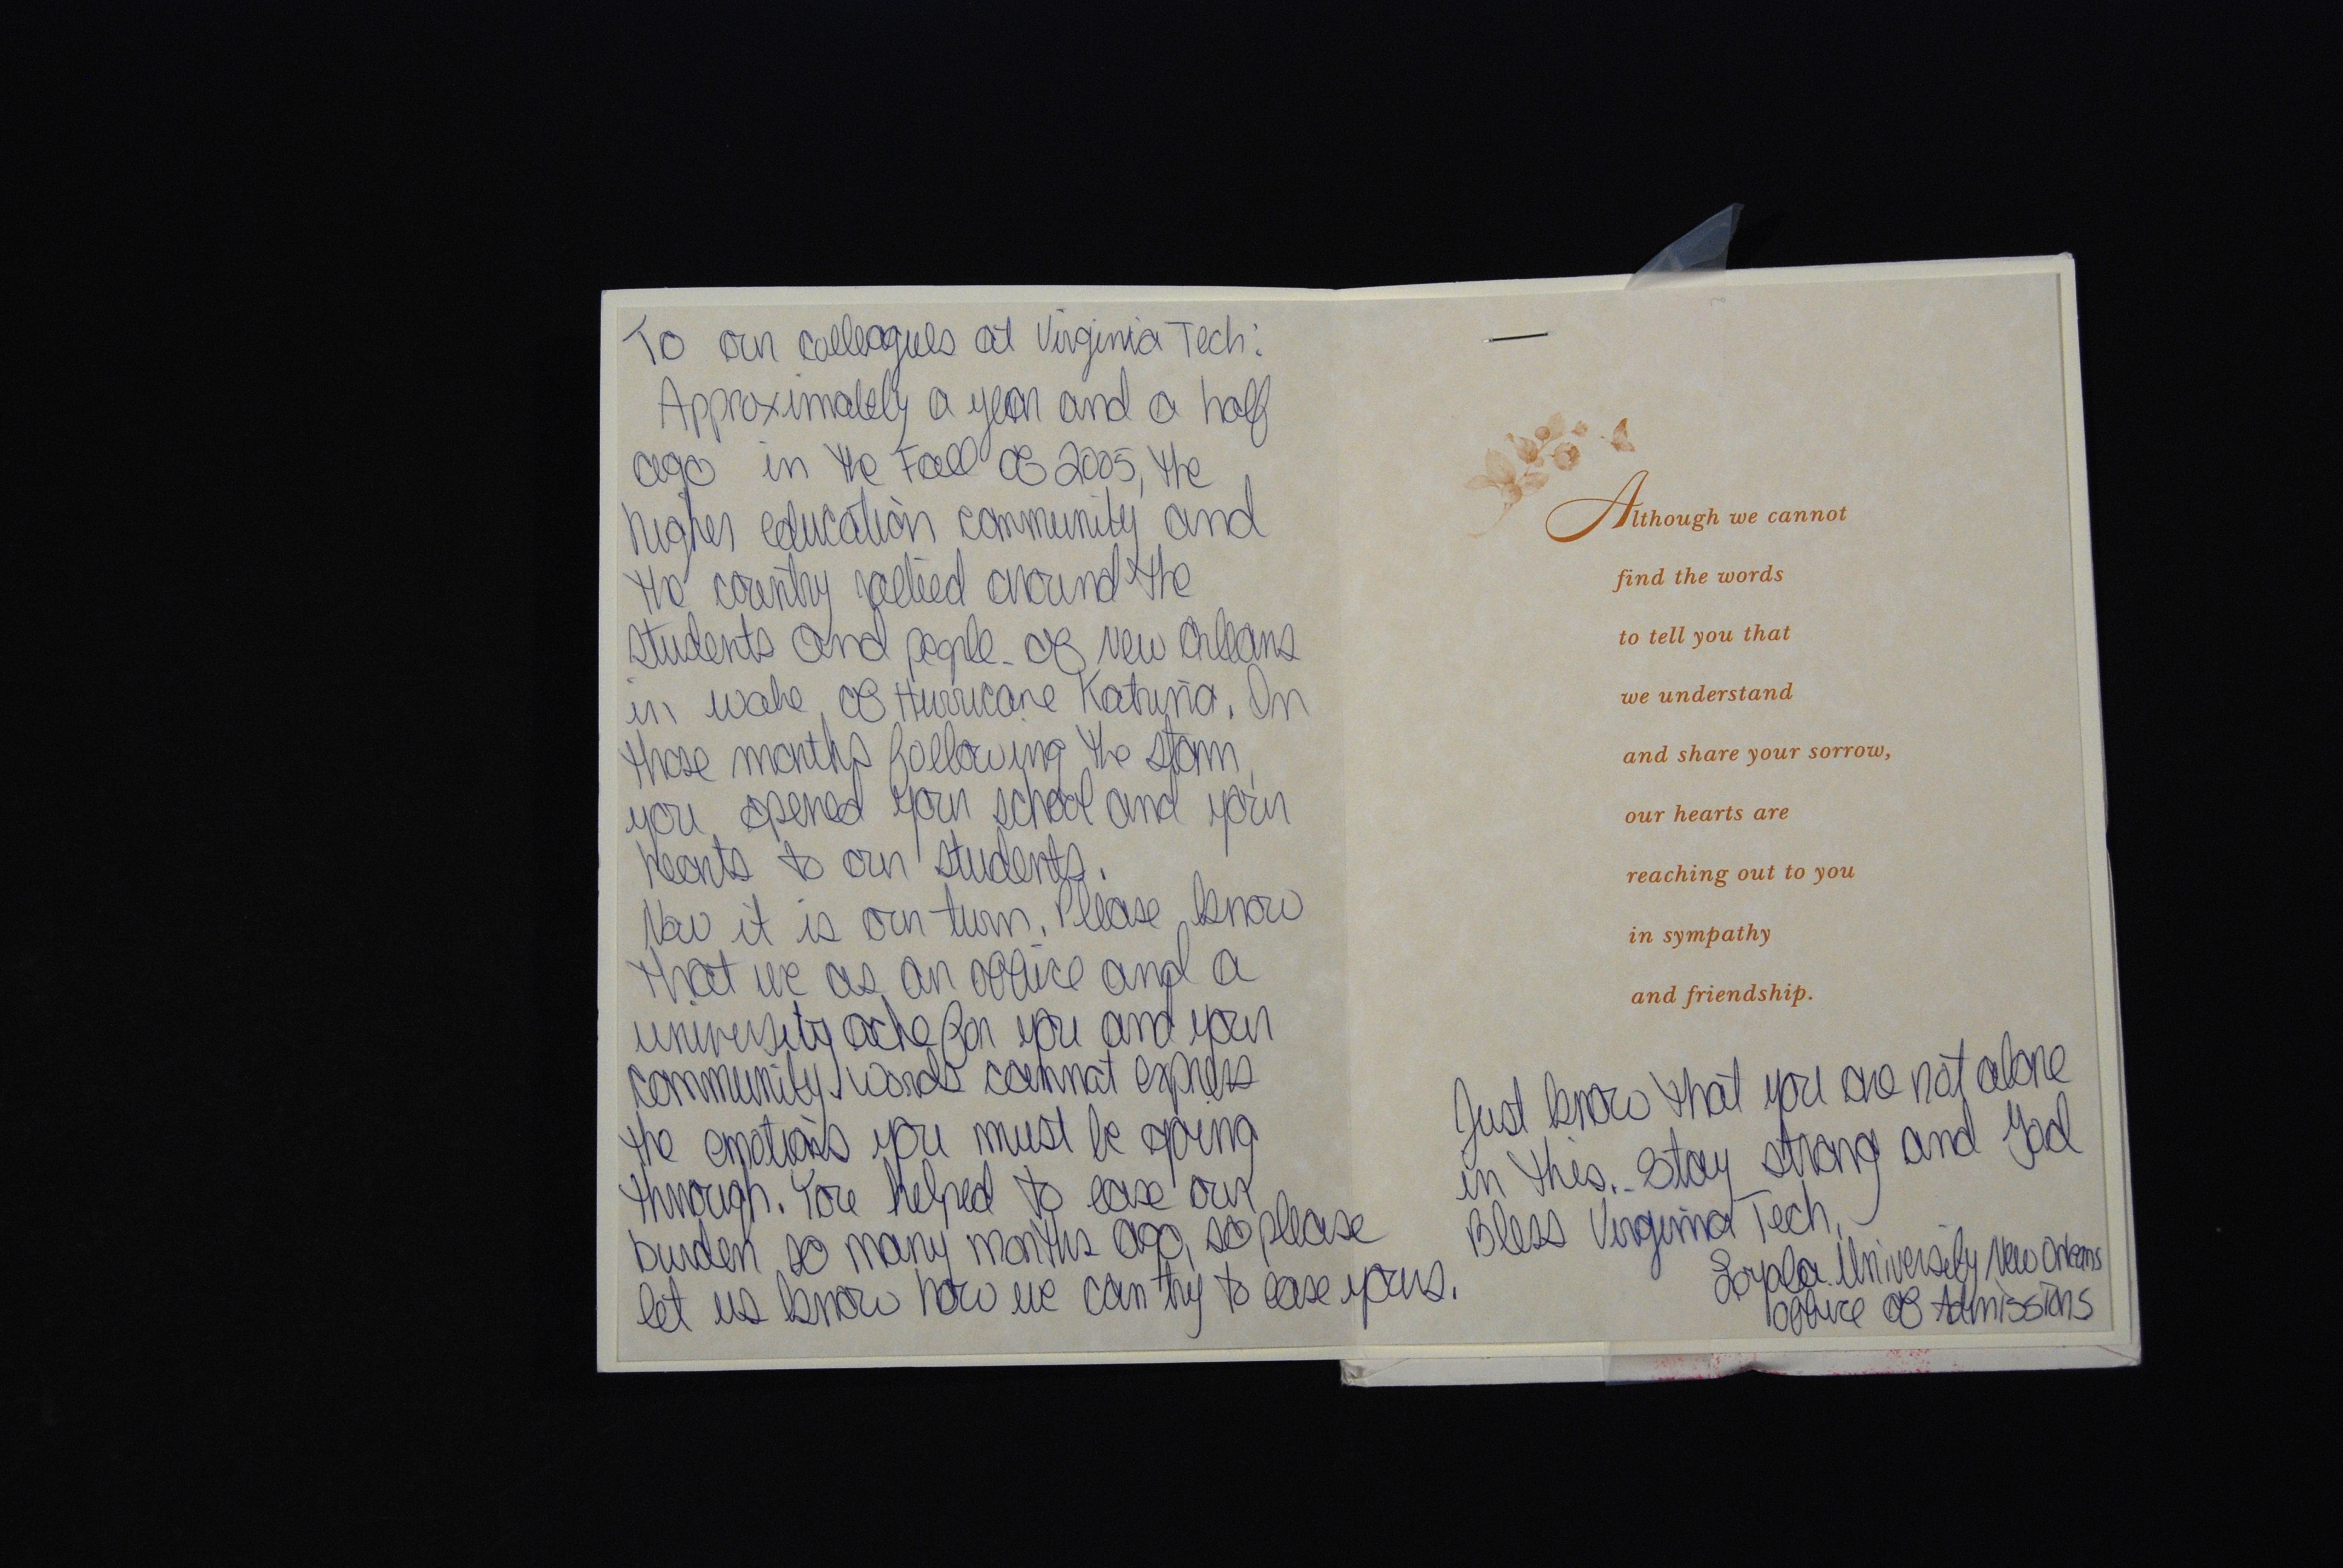 To our colleagues at Virginia Tech:
Approximately a year and a half
ago in the Fall of 2005, the
higher education community and
the country rallied around the
students and people of New Orleans
in wake of Hurricane Katrina. In
those months following the storm,
you opened your school and your
hearts to our students.
Now it is our turn. Please know
that we as an office and a
university ache for you and your
community. Words cannot express
the emotions you must be going
through. You helped to ease our
burden so many months ago, so please
let us know how we can try to ease yours.
Although we cannot
find the words
to tell you that
we understand
and share your sorrow,
our hearts are
reaching out to you
in sympathy
and friendship.
Just know that you are not alone
in this. Stay strong and God
Bless Virginia Tech.
Loyola University New Orleans
Office of Admissions